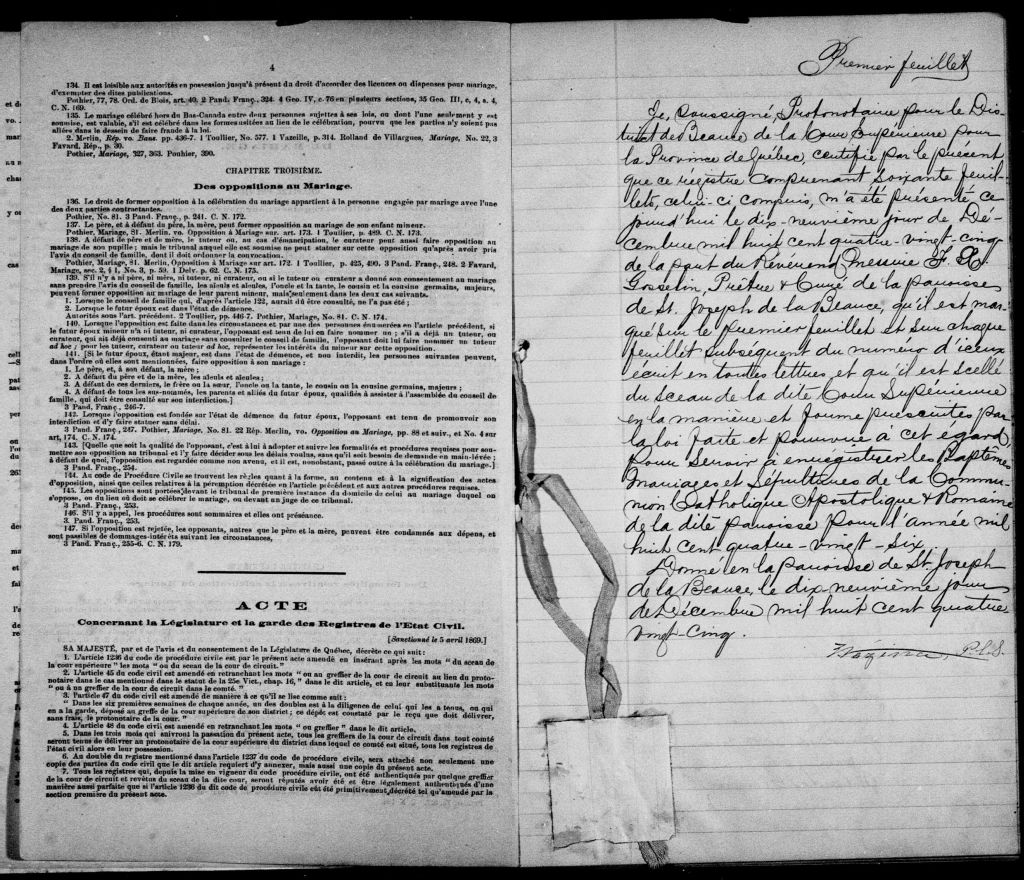 4
134. Il est loisible aux autorités en possession jusqu'à présent du droit d'accorder des licences ou dispenses pour mariage,
d'exempter des dites publications.
Pothier, 77, 78. Ord. de Blois, art. 40. 2 Pand. Franç., 324. 4 Geo. IV, c. 76 en plusieurs sections, 35 Geo. III, c. 4, s. 4,
C. N. 169.
135. Le mariage célébré hors du Bas-Canada entre deux personnes sujettes à ses lois, ou dont l'une seulement y est
soumise, est valable, s'il est célébré dans les formes usitées au lieu de la célébration, pourvu que les parties n'y soient pas
allées dans le dessein de faire fraude à la loi.
2. Merlin, Rép. vo. Bans. pp. 436-7. 1 Toullier, No. 577. 1 Vazeille, p. 314. Rolland de Villargues, Mariage, No. 22, 3
Favard, Rép., p. 30.
Pothier, Mariage, 327, 363. Pouhier, 390.
CHAPITRE TROISIÈME.
Des oppositions au Mariage.
136. Le droit de former opposition à la célébration du mariage appartient à la personne engagée par mariage avec l'une
des deux parties contractantes.
Pothier, No. 81. 3 Pand. Franç., p. 241. C. N. 172.
137. Le père, et à défaut du père, la mère, peut former opposition au mariage de son enfant mineur.
Pothier, Mariage, 81. Merlin, vo. Opposition à Mariage sur. art. 173. 1 Toullier, p. 489. C. N. 173.
138. A défaut de père et de mère, le tuteur ou, au cas d'émancipation, le curateur peut aussi faire opposition au
mariage de son pupille; mais le tribunal auquel elle est soumise ne peut statuer sur cette opposition qu'après avoir pris
l'avis du conseil de famille, dont il doit ordonner la convocation.
Pothier, Mariage, 81. Merlin, Opposition à Mariage sur art. 172. 1 Toullier, p. 425, 490. 3 Pand. Franç., 248. 2 Favard,
Mariage, sec. 2, § 1, No. 3, p. 59. 1 Delv. p. 62. C. N. 175.
139. S'il n'y a ni père, ni mère, ni tuteur, ni curateur, ou si le tuteur ou curateur a donné son consentement au mariage
sans prendre l'avis du conseil de famille, les aïeuls et aïeules, l'oncle et la tante, le cousin et la cousine germains, majeurs,
peuvent former opposition au mariage de leur parent mineur, mais seulement dans les deux cas suivants.
1. Lorsque le conseil de famille qui, d'après l'article 122, aurait dû être consulté, ne l'a pas été;
2. Lorsque le futur époux est dans l'état de démence.
Autorités sous l'art. précédent. 2 Toullier, pp. 446-7. Pothier, Mariage, No. 81. C. N. 174.
140. Lorsque l'opposition est faite dans les circonstances et par une des personnes énumérées en l'article précédent, si
le futur époux mineur n'a ni tuteur, ni curateur, l'opposant est tenu de lui en faire nommer un; s'il a déjà un tuteur, ou
curateur, qui ait déjà consenti au mariage sans consulter le conseil de famille, l'opposant doit lui faire nommer un tuteur
ad hoc; pour les tuteur, curateur ou tuteur ad hoc, représenter les intérêts du mineur sur cette opposition.
141. [Si le futur époux, étant majeur, est dans l'état de démence, et non interdit, les personnes suivantes peuvent,
dans l'ordre où elles sont mentionnées, faire opposition à son mariage:
1. Le père, et, à son défaut, la mère;
2. A défaut du père et de la mère, les aïeuls et aïeules;
3. A défaut de ces derniers, le frère ou la sœur, l'oncle ou la tante, le cousin ou la cousine germains, majeurs;
4. A défaut de tous les sus-nommés, les parents et alliés du futur époux, qualifiés à assister à l'assemblée du conseil de
famille, qui doit être consulté sur son interdiction.]
3 Pand. Franç., 246-7.
142. Lorsque l'opposition est fondée sur l'état de démence du futur époux, l'opposant est tenu de promouvoir son
interdiction et d'y faire statuer sans délai.
3 Pand. Franç., 247. Pothier, Mariage, No. 81. 22 Rép. Merlin, vo. Opposition au Mariage, pp. 88 et suiv., et No. 4 sur
art, 174. C. N. 174.
143. [Quelle que soit la qualité de l'opposant, c'est à lui à adopter et suivre les formalités et procédures requises pour sou-
mettre son opposition au tribunal et l'y faire décider sous les délais voulus, sans qu'il soit besoin de demande en main-levée;
à défaut de quoi, l'opposition est regardée comme non avenu, et il est, nonobstant, passé outre à la célébration du mariage.]
3 Pand. Franç., 254.
144. Au code de Procédure Civile se trouvent les règles quant à la forme, au contenu et à la signification des actes
d'opposition, ainsi que celles relatives à la péremption décrétée en l'article précédent et aux autres procédures requises.
145. Les oppositions sont portées devant le tribunal de première instance du domicile de celui au mariage duquel on
s'oppose, ou du lieu où doit se célébrer le mariage, ou devant un juge de ce tribunal.
3 Pand. Franç., 253.
146. S'il y a appel, les procédures sont sommaires et elles ont préséance.
3. Pand. Franç., 253.
147. Si l'opposition est rejetée, les opposants, autres que le père et la mère, peuvent être condamnés aux dépens, et
sont passibles de dommages-intérêts suivant les circonstances,
3 Pand. Franç., 255-6. C. N. 179.
ACTE
Concernant la Législature et la garde des Registres de l'Etat Civil.
[Sanctionné le 5 avril 1869.]
SA MAJESTÉ, par et de l'avis et du consentement de la Législature de Québec, décrète ce qui suit:
1. L'article 1236 du code de procédure civile est par le présent acte amendé en insérant après les mots " du sceau de
la cour supérieure " les mots " ou du sceau de la cour de circuit."
2. L'article 45 du code civil est amendé en retranchant les mots " ou au greffier de la cour de circuit au lieu du proto-
notaire dans le cas mentionné dans le statut de la 25e Vict., chap. 16," dans le dit article, et en leur substituant les mots
" ou à un greffier de la cour de circuit dans le comté."
3. l'article 47 du code civil est amendé de manière à ce qu'il se lise comme suit:
" Dans les six premières semaines de chaque année, un des doubles est à la diligence de celui qui les a tenus, ou qui
en a la garde, déposé au greffe de la cour supérieure de son district; ce dépôt est constaté par le reçu que doit délivrer,
sans frais, le protonotaire de la cour."
4. L'article 48 du code civil est amendé en retranchant les mots " ou greffier " dans le dit article.
5. Dans les trois mois qui suivront la passation du présent acte, tous les greffiers de la cour de circuit dans tout comté
seront tenus de délivrer au protonotaire de la cour supérieure du district dans lequel ce comté est situé, tous les registres de
l'état civil alors en leur possession.
6. Au double du registre mentionné dans l'article 1237 du code de procédure civile, sera attaché non seulement une
copie des parties du code civil que le dit article requiert d'y annexer, mais aussi une copie du présent acte.
7. Tous les registres qui, depuis la mise en vigueur du code procédure civile, ont été authentiqués par quelque greffier
de la cour de circuit et revêtus du sceau de la dite cour, seront réputés avoir été et être légalement authentiqués d'une
manière aussi parfaite que si l'article 1236 du dit code de procédure civile eût été primitivement décrété tel qu'amendé par la
section première du présent acte.
Premier feuillet
Je, soussigné, Protonotaire pour le Dis-
trict de Beauce de la Cour Supérieure pour
la Province de Québec, certifie par le présent
que ce régistre comprenant soixante feuil-
lets, celui-ci compris, m'a été présenté ce
jourd'hui le dix-neuvième jour de Dé-
cembre mil huit cent quatre-vingt-cinq
de la part du Révérend Messire F. X.
Gosselin, Prêtre & Curé de la paroisse
de St. Joseph de la Beauce, qu'il est mar-
qué sur le premier feuillet et sur chaque
feuillet subsequent du numéro d'iceux
écrit en toutes lettres et qu'il est scellé
du sceau de la dite Cour Supérieure
en la manière et forme prescrites par
la loi faite et pourvue à cet egard
pour servir à enregistrer les Baptêmes
Mariages et Sépultures de la Commu-
nion Catholique Apostolique & Romaine
de la dite paroisse pour l'année mil
huit cent quatre-vingt-six.
Donné en la paroisse de St. Joseph
de la Beauce, le dix-neuvième jour
de Décembre mil huit cent quatre
vingt-cinq.
P.C.S.